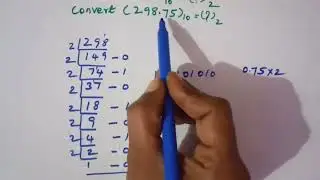 convert (298.75)10 = (?)2
2 298
2 149 - 0
2 74 - 1
2 37 - 0
2 18 - 1
2 9 - 0
2 4 - 1
2 2 - 0
1 - 0
01010
0.75×2